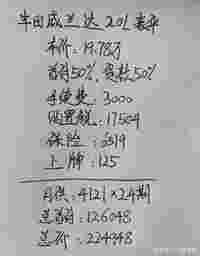 丰田威兰达 2.0L
价: 19.78万
首付50%, 贷款50%
手续费: 3000
购置税: 17504
保险: 6519
上牌: 125
月供: 4121×24期
总首付: 126048
总价: 224948